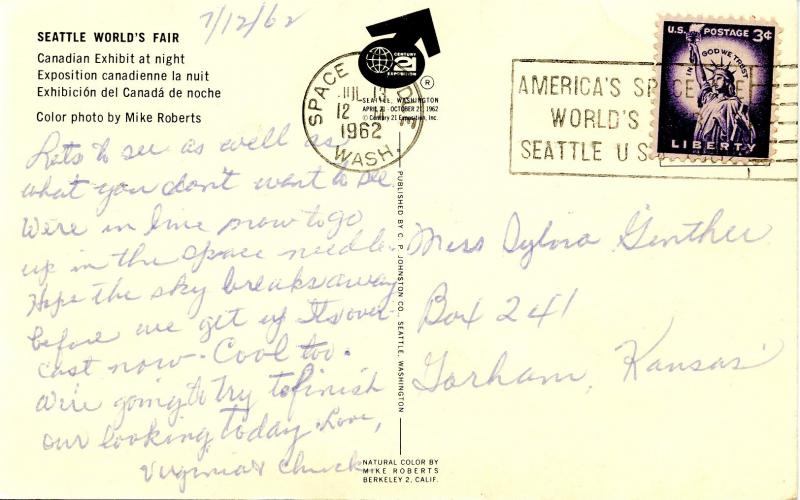 7/12/62
SEATTLE WORLD'S FAIR
Canadian Exhibit at night
Exposition canadienne la nuit
Exhibición del Canadá de noche
Color photo by Mike Roberts
Lots to see as well as
what you don't want to see.
We're in line now to go
up in the space needle.
Hope the sky breaks away
before we get up. It's over-
cast now. Cool too.
We're going to try to finish
our looking today. Love,
Virginia & Chuck
CENTURY
21
EXPOSITION
®
SEATTLE, WASHINGTON
APRIL 21 - OCTOBER 21, 1962
© Century 21 Exposition, Inc.
SPACE
JUL 13
12
1962
WASH.
AMERICA'S SPACE
WORLD'S
SEATTLE U S
U.S. POSTAGE 3¢
IN GOD WE TRUST
LIBERTY
PUBLISHED BY C. P. JOHNSTON CO., SEATTLE, WASHINGTON
Miss Sylvia Ginther
Box 241
Gorham, Kansas
NATURAL COLOR BY
MIKE ROBERTS
BERKELEY 2, CALIF.